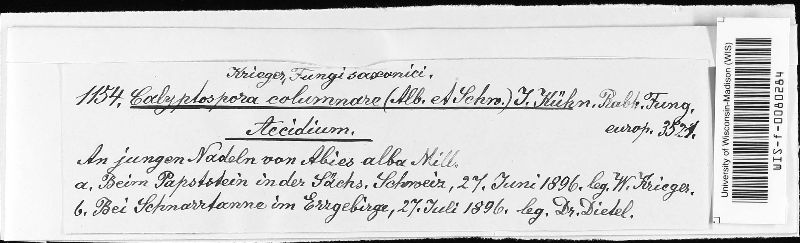 Krieger, Fungi saxonici.
1154. Calyptospora columnare (Alb. et Schw.) J. Kühn. Rabh. Fung.
Aecidium. europ. 3521.
An jungen Nadeln von Abies alba Mill.
a. Beim Papststein in der Sächs. Schweiz, 27. Juni 1896. leg. W. Krieger.
b. Bei Schnarrtanne im Erzgebirge, 27. Juli 1896. leg. Dr. Dietel.
University of Wisconsin-Madison (WIS)
WIS-f-0080284